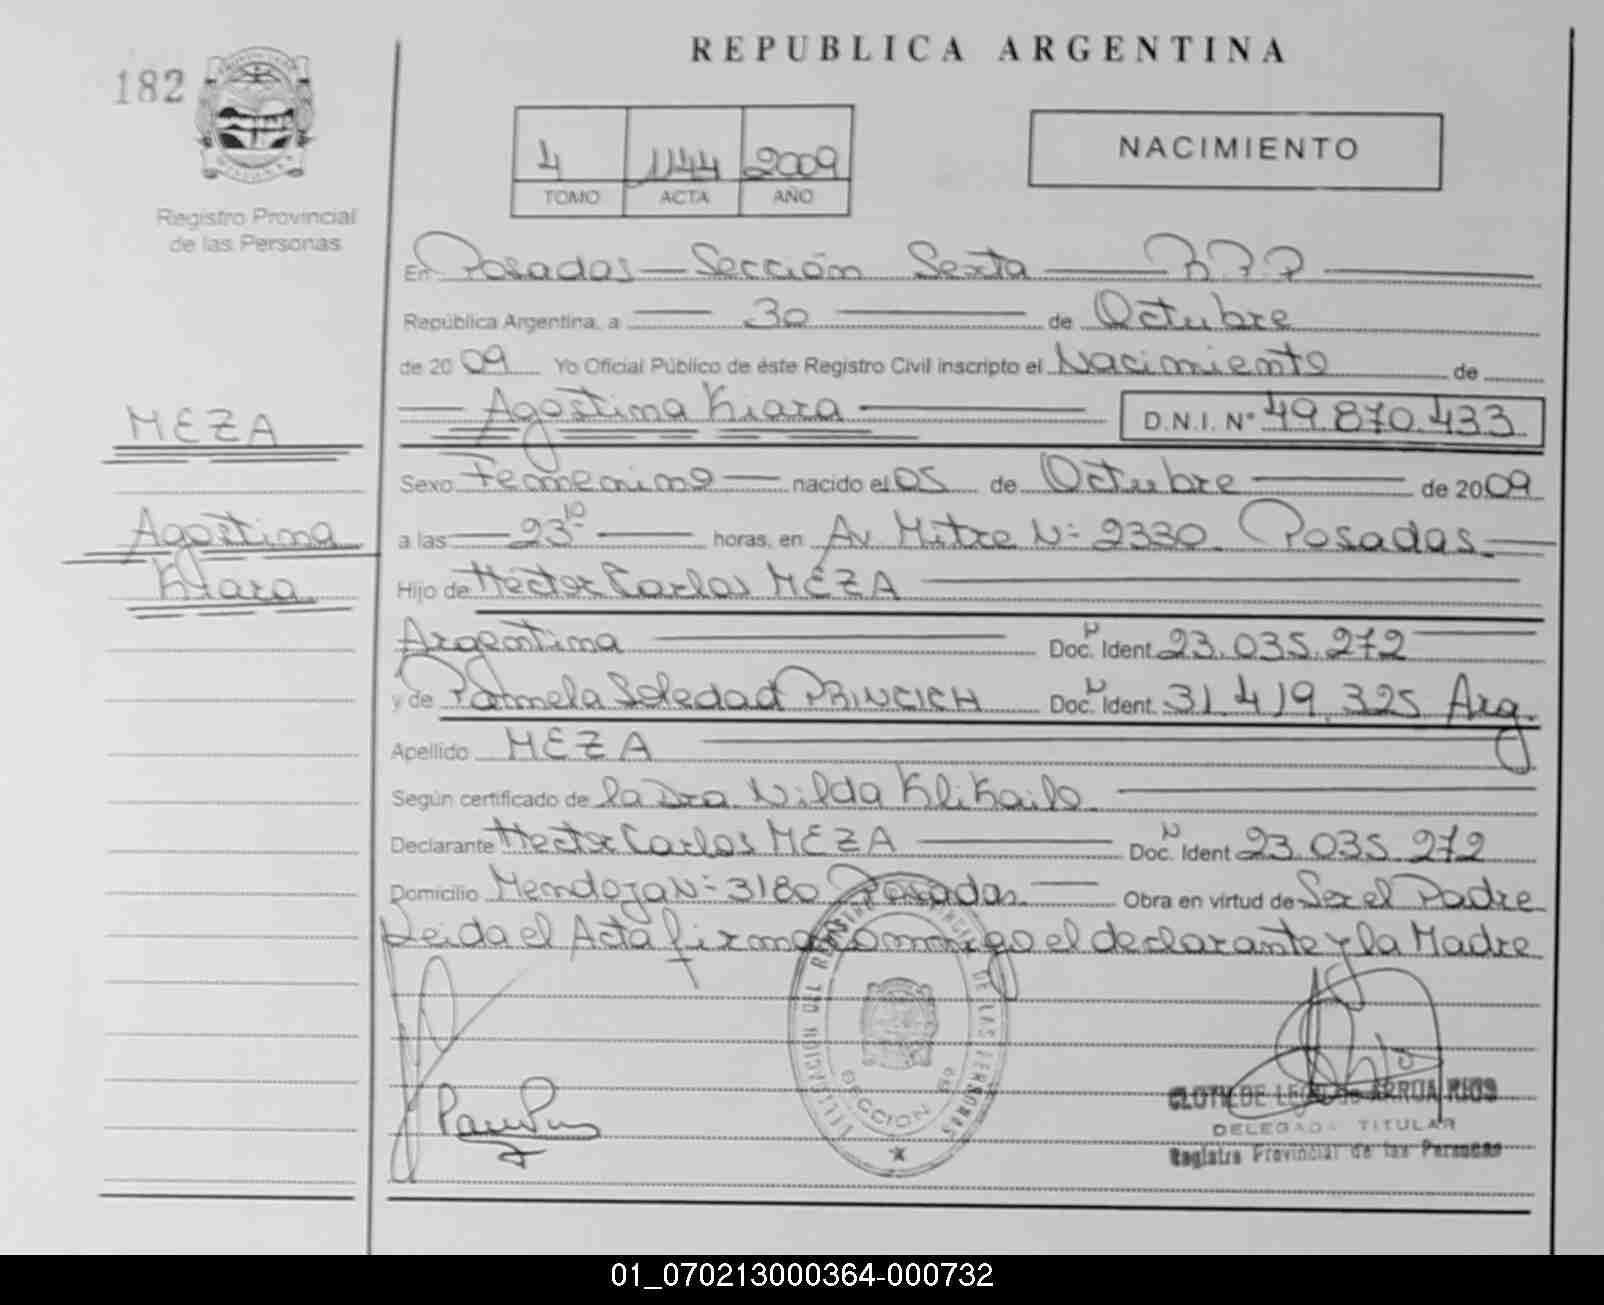 REPUBLICA ARGENTINA
182
4 1144 2009
TOMO ACTA AÑO
NACIMIENTO
Registro Provincial
de las Personas
En Posadas — Sección Sexta — R.P.P —
República Argentina, a — 30 — de Octubre
de 2009 Yo Oficial Público de éste Registro Civil inscripto el Nacimiento de
— Agostina Kiara — D.N.I. N° 49.870.433
MEZA
Sexo Femenino — nacido el 05 de Octubre — de 2009
Agostina
a las — 23 10 — horas, en Av. Mitre Nº 2330 Posadas —
Kiara
Hijo de Hector Carlos MEZA —
Argentina — Doc. N Ident. 23.035.272 —
y de Pamela Soledad PRINCICH Doc. N Ident. 31.419.325 Arg.
Apellido MEZA —
Según certificado de la Dra. Nilda Klikailo —
Declarante Hector Carlos MEZA — Doc. N Ident 23.035.272
Domicilio Mendoza Nº 3180 Posadas — Obra en virtud de Ser el Padre
Leida el Acta firma conmigo el declarante y la Madre
DELEGACION DEL REGISTRO PROVINCIAL DE LAS PERSONAS
SECCION 6ª
CLOTILDE ARRUA RIOS
DELEGADA TITULAR
Registro Provincial de las Personas
01_070213000364-000732